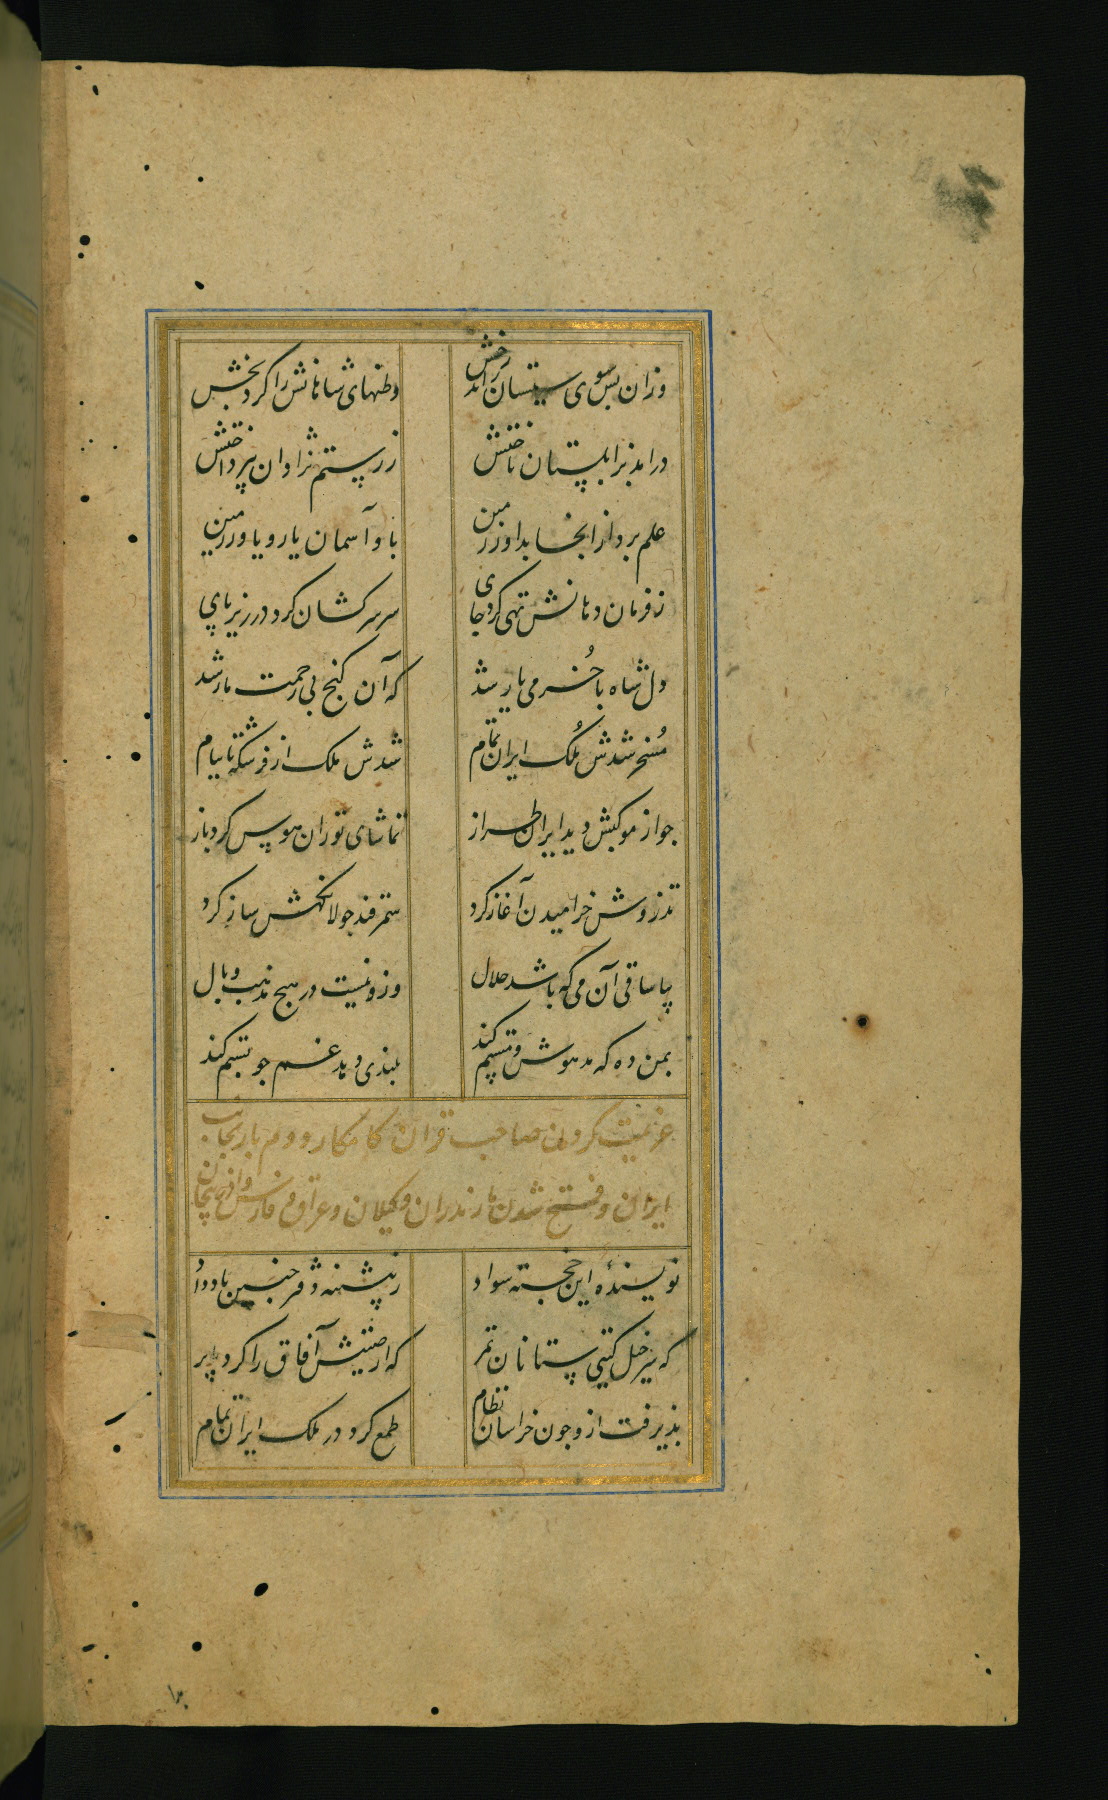 وزان پس سوی سیستان راند رخش وطنهای شاهانش را کرد بخش
درآمد بزابلستان تاختش ز رستم نژادان بپرداختش
علم برد ازانجا بداور زمین باو آسمان یار و یاور زمین
ز فرمان دهانش تهی کرد جای سر سرکشان کرد در زیر پای
دل شاه با خرمی یار شد که آن گنج بی زحمت مار شد
مسخر شدش ملک ایران تمام شدش ملک از فرشته تا بیام
جو از موکبش دید ایران طراز تماشای توران هوس کرد باز
تذروش خرامیدن آغاز کرد سمرقند جولانگهش ساز کرد
بیا ساقی آن می که باشد حلال وزو نیست در هیچ مذهب وبال
بمن ده که مدهوش و مستم کند بلندی دهد غم جو پستم کند
عزیمت کردن صاحب قران کامکار دوم بار بجانب
ایران و فتح شدن مازندران و گیلان و عراق و فارس و آذربیجان
نویسندهٔ این خجسته سواد ز پیشینه دفتر جنین یاد داد
که سرخیل گیتی ستانان تمر که ارصیتش آفاق را کرد پر
بذیرفت ازو جون خراسان نظام طمع کرد در ملک ایران تمام